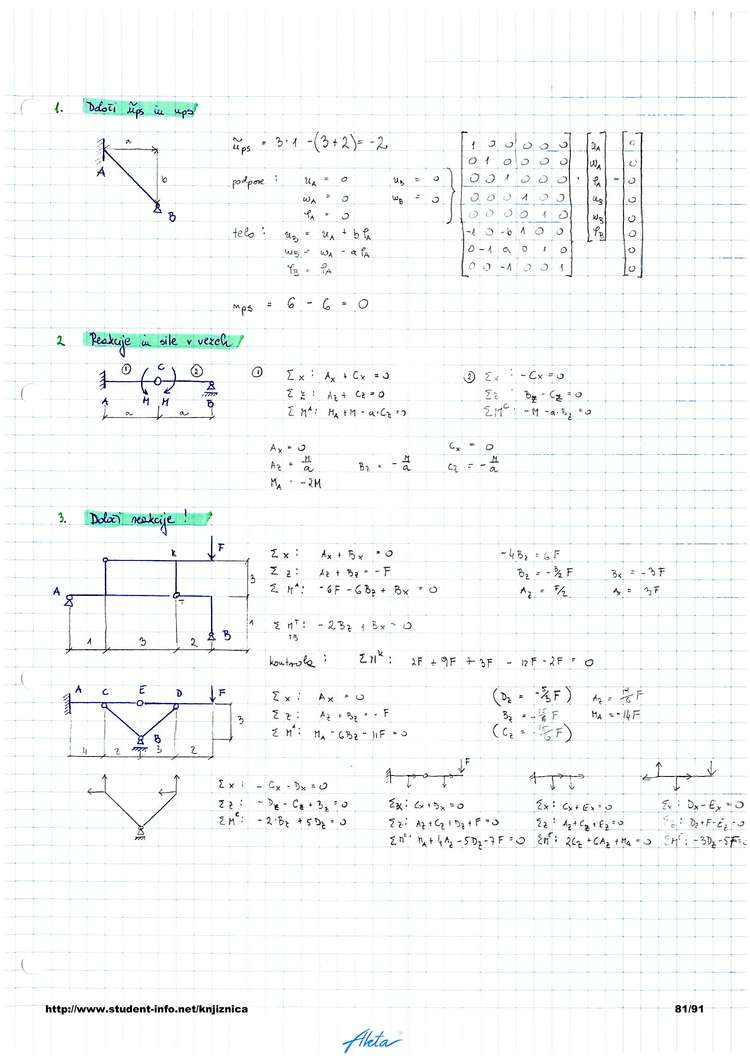 1. Določi ñps in nps
a
A
b
B
ñps = 3·1 - (3+2) = -2
podpore: uA = 0 uB = 0
wA = 0 wB = 0
φA = 0
telo: uB = uA + b φA
wB = wA - a φA
φB = φA
1 0 0 0 0 0 uA 0
0 1 0 0 0 0 wA 0
0 0 1 0 0 0 φA 0
0 0 0 1 0 0 · uB = 0
0 0 0 0 1 0 wB 0
-1 0 -b 1 0 0 φB 0
0 -1 a 0 1 0 0
0 0 -1 0 0 1 0
nps = 6 - 6 = 0
2 Reakcije in sile v vezeh
① C ②
A M M B
a a
① Σx: Ax + Cx = 0
Σz: Az + Cz = 0
ΣM^A: MA + M - a·Cz = 0
② Σx: -Cx = 0
Σz: Bz - Cz = 0
ΣM^C: -M - a·Bz = 0
Ax = 0 Cx = 0
Az = M/a Bz = -M/a Cz = -M/a
MA = -2M
3. Določi reakcije!
K F
A T B
3
1
1 3 2
Σx: Ax + Bx = 0
Σz: Az + Bz = -F
ΣM^A: -6F - 6Bz + Bx = 0
ΣM^T TB: -2Bz + Bx = 0
-4Bz = 6F
Bz = -3/2 F Bx = -3F
Az = F/2 Ax = 3F
kontrola: ΣM^K: 2F + 9F + 3F - 12F - 2F = 0
A C E D F
B
3
4 2 3 2
Σx: Ax = 0
Σz: Az + Bz = -F
ΣM^A: MA - 6Bz - 11F = 0
MA = -14F
Σx: -Cx - Dx = 0
Σz: -Dz - Cz + Bz = 0
ΣM^C: -2·Bz + 5Dz = 0
F
Σx: Cx + Dx = 0
Σz: Az + Cz + Dz + F = 0
MA + 4Az - 5Dz - 7F = 0
Σx: Cx + Ex = 0
Σz: Az + Cz + Ez = 0
ΣM^E: 2Cz + 6Az + MA = 0
Σx: Dx - Ex = 0
Σz: Dz + F - Ez = 0
ΣM^E: -3Dz - 5F = 0
http://www.student-info.net/knjiznica
81/91
Ahta